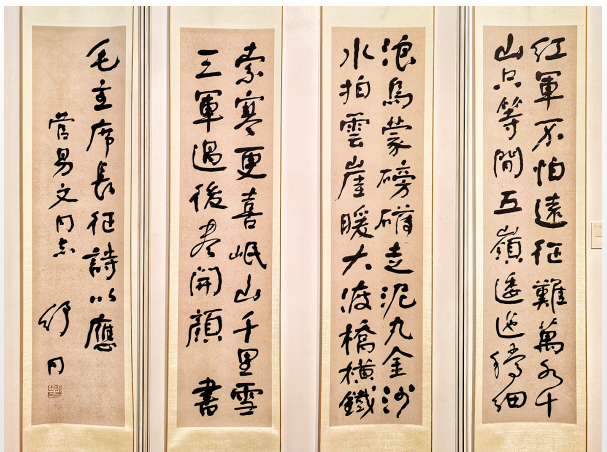 紅軍不怕遠征難萬水千
山只等閒五嶺逶迤騰細
浪烏蒙磅礴走泥丸金沙
水拍雲崖暖大渡橋橫鐵
索寒更喜岷山千里雪
三軍過後尽開顏 書
毛主席長征詩以應
易文同志
舒同